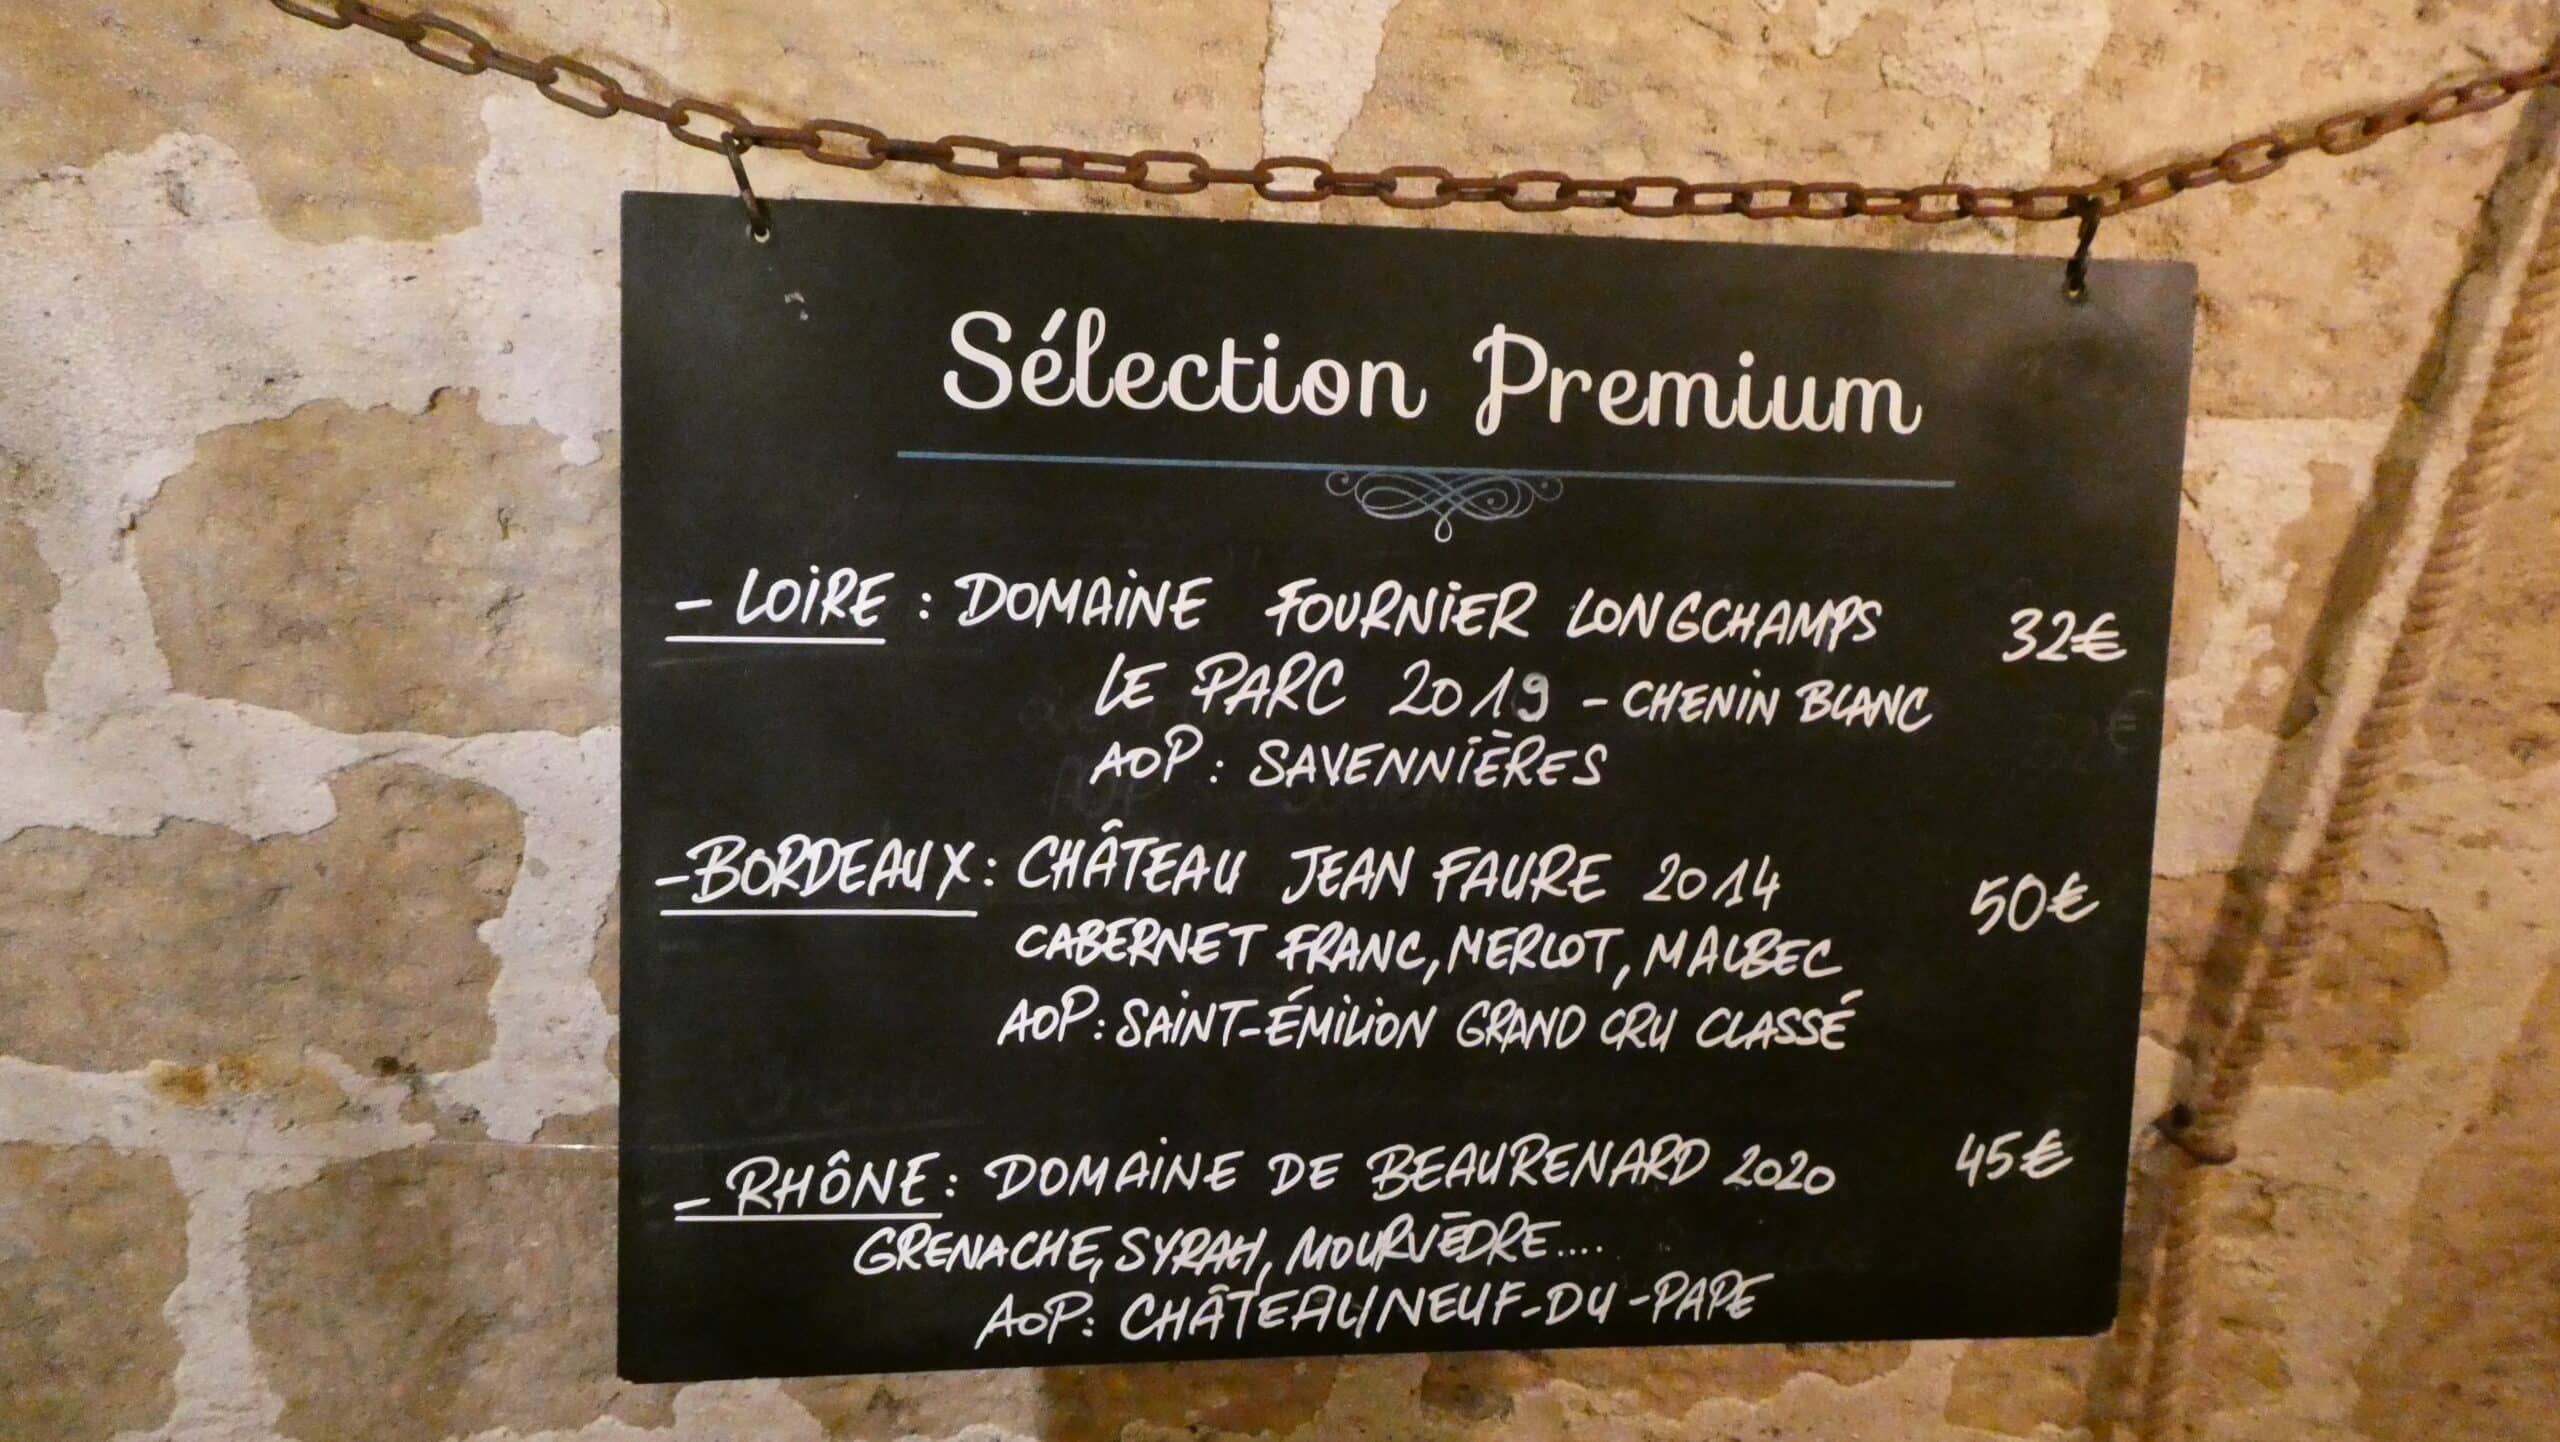 Sélection Premium
- LOIRE : DOMAINE FOURNIER LONGCHAMPS 32€
LE PARC 2019 - CHENIN BLANC
AOP : SAVENNIÈRES
- BORDEAUX : CHÂTEAU JEAN FAURE 2014 50€
CABERNET FRANC, MERLOT, MALBEC
AOP : SAINT-ÉMILION GRAND CRU CLASSÉ
- RHÔNE : DOMAINE DE BEAURENARD 2020 45€
GRENACHE, SYRAH, MOURVÈDRE....
AOP : CHÂTEAUNEUF-DU-PAPE